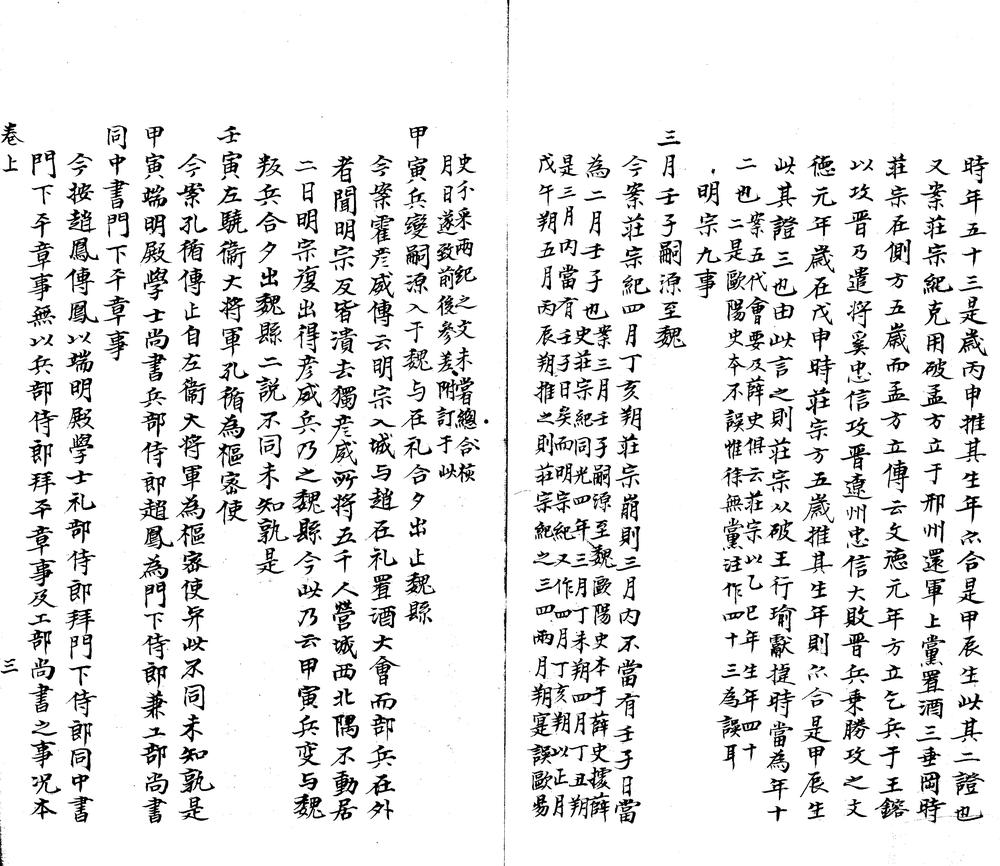 時年五十三是歲丙申推其生年亦合是甲辰生此其二證也
又案莊宗紀克用破孟方立于邢州還軍上黨置酒三垂岡時
莊宗在側方五歲而孟方立傳云文德元年方立乞兵于王鎔
以攻晉乃遣將奚忠信攻晉遼州忠信大敗晉兵乘勝攻之文
德元年歲在戊申時莊宗方五歲推其生年則亦合是甲辰生
此其證三也由此言之則莊宗以破王行瑜獻捷時當為年十
二也
案五代會要及薛史俱云莊宗以乙巳年生年四十
二是歐陽史本不誤惟徐無黨注作四十三為誤耳
明宗九事
三月壬子嗣源至魏
今案莊宗紀四月丁亥朔莊宗崩則三月內不當有壬子日當
為二月壬子也
案三月壬子嗣源至魏歐陽史本于薛史據薛
史莊宗紀同光四年三月丁未朔四月丁丑朔
是三月內當有壬子日矣而明宗紀又作四月丁亥朔以正月
戊午朔五月丙辰朔推之則莊宗紀之三四兩月朔寔誤歐昜
史不采兩紀之文未嘗總合核
月日遂致前後參差附訂于此
甲寅兵變嗣源入于魏与在礼合夕出止魏縣
今案霍彦威傳云明宗入城与趙在礼置酒大會而部兵在外
者聞明宗反皆潰去獨彦威所將五千人營城西北隅不動居
二日明宗復出得彦威兵乃之魏縣今此乃云甲寅兵变与魏
叛兵合夕出魏縣二說不同未知孰是
壬寅左驍衞大將軍孔循為樞密使
今案孔循傳止自左衞大將軍為樞密使与此不同未知孰是
甲寅端明殿學士尚書兵部侍郎趙鳳為門下侍郎兼工部尚書
同中書門下平章事
今按趙鳳傳鳳以端明殿學士礼部侍郎拜門下侍郎同中書
門下平章事無以兵部侍郎拜平章事及工部尚書之事况本
卷上
三